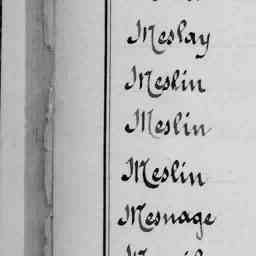 Meslay
Meslin
Meslin
Meslin
Mesnage